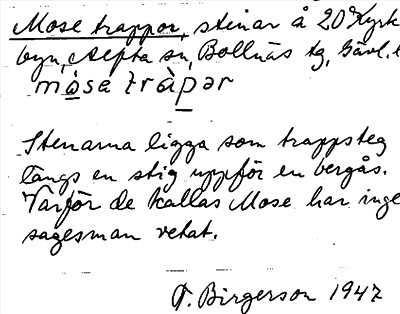 Mose trappor, stenar å 20° Kyrk
byn, Alfta sn, Bollnäs tg, Gävl. l
mòsa tràpər
Stenarna ligga som trappsteg
längs en stig uppför en bergås.
Varför de kallas Mose har inge
sagesman vetat.
T. Birgerson 1947